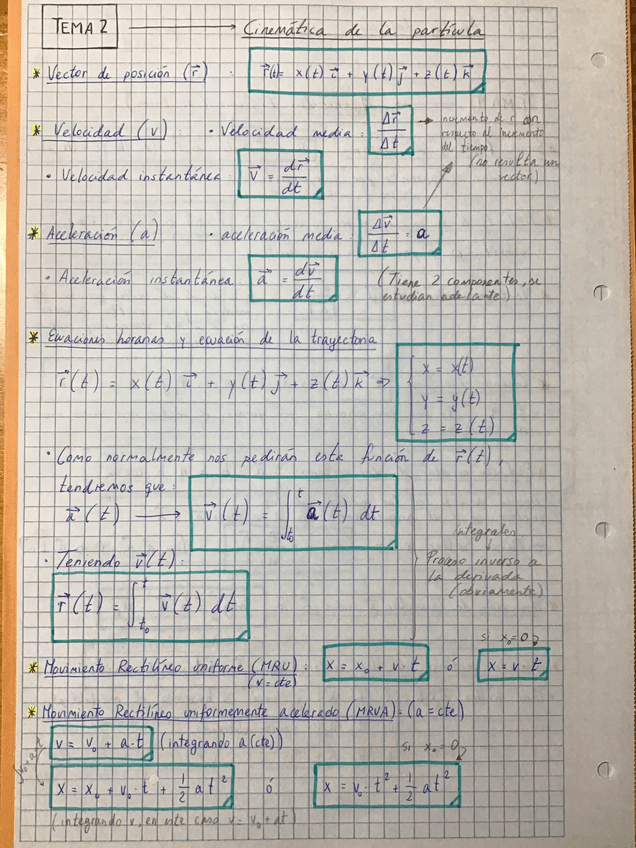 TEMA 2 → Cinemática de la partícula
* Vector de posición (r⃗) : r⃗(t)= x(t) i⃗ + y(t) j⃗ + z(t) k⃗
* Velocidad (v) : • Velocidad media : Δr⃗/Δt → incremento de r con
respecto al incremento
del tiempo
(no resulta un
vector)
• Velocidad instantánea : v⃗ = dr⃗/dt
* Aceleración (a) • aceleración media : Δv⃗/Δt = a
• Aceleración instantánea : a⃗ = dv⃗/dt (Tiene 2 componentes, se
estudian adelante)
* Ecuaciones horarias y ecuación de la trayectoria
r⃗(t) = x(t) i⃗ + y(t) j⃗ + z(t) k⃗ ⇒ { x = x(t)
y = y(t)
z = z(t)
• Como normalmente nos pedirán esta función de r⃗(t),
tendremos que :
a⃗(t) → v⃗(t) = ∫_{t₀}^{t} a⃗(t) dt
integrales
↓
Proceso inverso a
la derivada
(obviamente)
• Teniendo v⃗(t) :
r⃗(t) = ∫_{t₀}^{t} v⃗(t) dt
* Movimiento Rectilíneo uniforme (MRU) : x = x₀ + v · t ó si x₀=0 x = v · t
(v=cte)
* Movimiento Rectilíneo uniformemente acelerado (MRVA) = (a = cte)
v = v₀ + a · t (integrando a (cte))
x = x₀ + v₀ · t + 1/2 at² ó si x₀ = 0 x = v₀ · t² + 1/2 at²
(integrando v, en este caso v = v₀ + at)